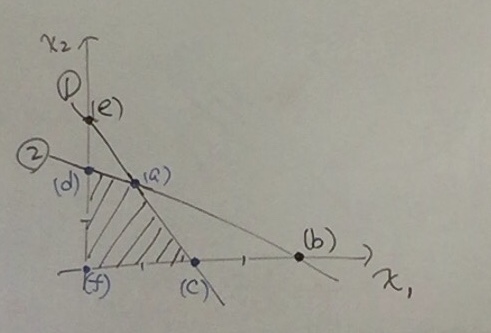 x₂
①
(e)
②
(d)
(a)
(b)
(f)
(c)
x₁